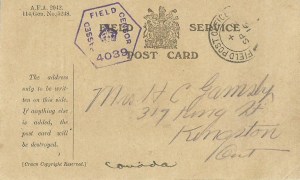 A.F.A. 2042.
114/Gen. No./5248.
FIELD SERVICE
POST CARD
FIELD CENSOR
4039
FIELD POST
The address
only to be writ-
ten on this side.
If anything else
is added, the
post card will
be destroyed.
[Crown Copyright Reserved.]
Mrs H C Gamsby
317 King St
Kingston
Ont
Canada